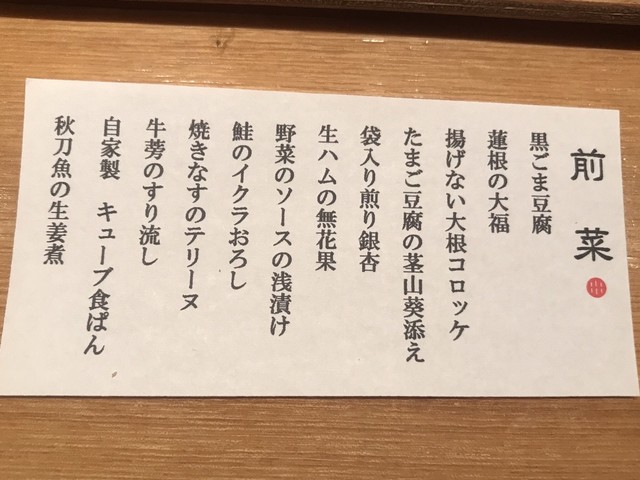 前菜
黒ごま豆腐
蓮根の大福
揚げない大根コロッケ
たまご豆腐の茎山葵添え
袋入り煎り銀杏
生ハムの無花果
野菜のソースの浅漬け
鮭のイクラおろし
焼きなすのテリーヌ
牛蒡のすり流し
自家製 キューブ食ぱん
秋刀魚の生姜煮